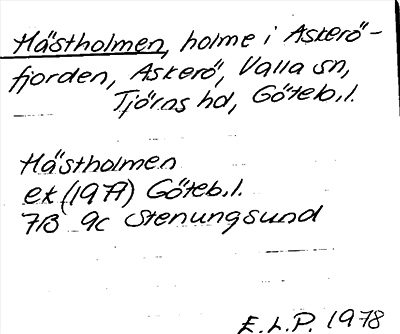 Hästholmen, holme i Askerö-
fjorden, Askerö, Valla sn,
Tjörns hd, Göteb.l.
Hästholmen
ek (1977) Göteb.l.
7B 9c Stenungsund
E.L.P. 1978